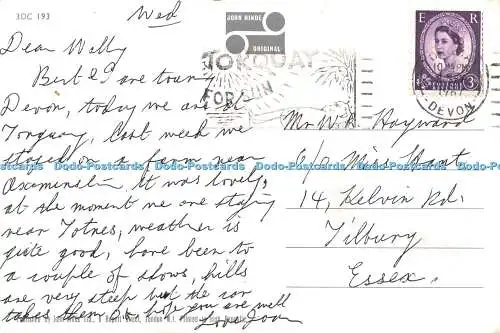 3DC 193
Wed
JOHN HINDE
ORIGINAL
TORQUAY
FOR SUN
E R
3D
DEVON
Dear Wally
Bert & I are touring
Devon, today we are at
Torquay, last week we
stayed on a farm near
Axeminster. It was lovely,
at the moment we are staying
near Totnes, weather is
quite good, have been to
a couple of shows, hills
are very steep but the car
takes them O.K. hope you are well
Love Joan
Mr W. Hayward
14, Kelvin Rd.
Tilbury
Essex.
Dodo-Postcards Dodo-Postcards Dodo-Postcards Dodo-Postcards Dodo-Postcards